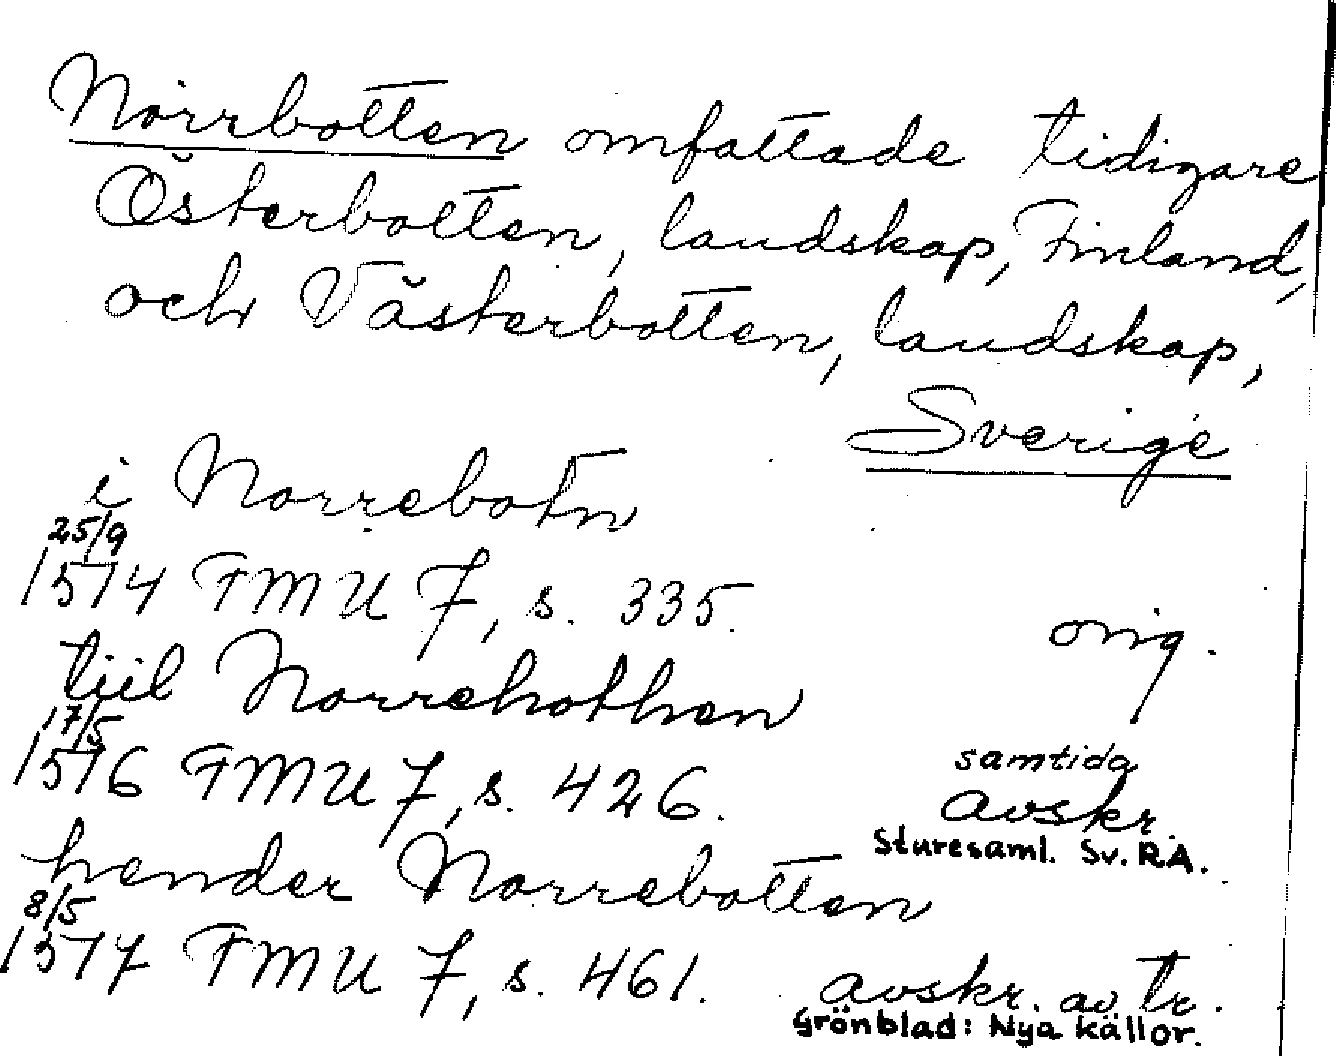 Norrbotten omfattade tidigare
Österbotten, landskap, Finland,
och Västerbotten, landskap,
Sverige
i Norrebotn
25/9
1514 FMU 7, s. 335. orig.
tiil Norrebothen
17/5
1516 FMU 7, s. 426. samtida
avskr.
Sturesaml. Sv. RA.
hender Norrebotten
8/5
1517 FMU 7, s. 461. avskr. av tr.
Grönblad: Nya källor.